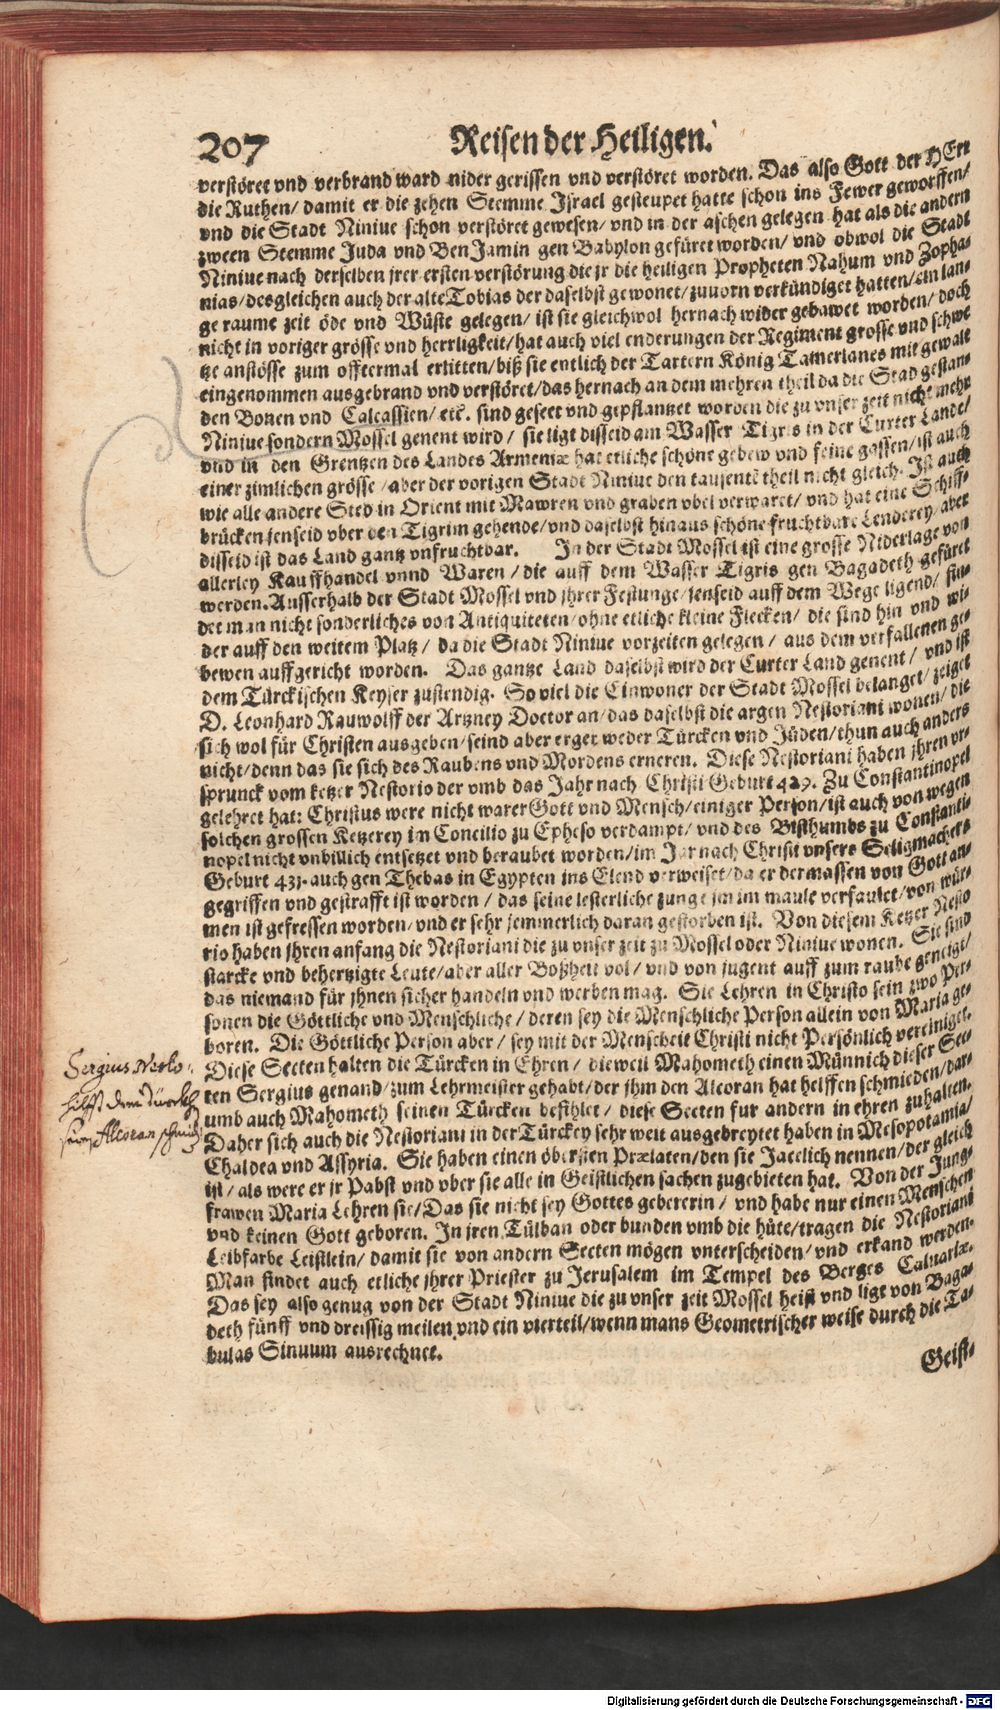 207 Reisen der Heiligen.
verstöret vnd verbrand ward nider gerissen vnd verstöret worden. Das also Gott der HErr
die Ruthen/ damit er die zehen Stemme Israel gesteupet hatte schon ins Fewer geworffen/
vnd die Stadt Niniue schon verstöret gewesen/ vnd in der aschen gelegen hat als die andern
zween Stemme Juda vnd BenJamin gen Babylon gefüret worden/ vnd obwol die Stadt
Niniue nach derselben jrer ersten verstörung die jr die heiligen Propheten Nahum vnd Zopha-
nias/ desgleichen auch der alte Tobias der daselbst gewonet/ zuuorn verkündiget hatten/ ein lan-
ge raume zeit öde vnd Wüste gelegen/ ist sie gleichwol hernach wider gebawet worden/ doch
nicht in voriger grösse vnd herrligkeit/ hat auch viel enderungen der Regiment grosse vnd schwe
tze anstösse zum offtermal erlitten/ biß sie entlich der Tartern König Tamerlanes mit gewalt
eingenommen ausgebrand vnd verstöret/ das hernach an dem mehren theil da die Stad gestan-
den Bonen vnd Calcassien/ etc. sind geseet vnd gepflantzet worden die zu vnser zeit nicht mehr
Niniue sondern Mossel genent wird/ sie ligt disseid am Wasser Tigris in der Curter Lande/
vnd in den Grentzen des Landes Armeniæ hat etliche schöne gebew vnd feine gassen/ ist auch
einer zimlichen grösse/ aber der vorigen Stadt Niniue den tausentē theil nicht gleich. Ist auch
wie alle andere Sted in Orient mit Mawren vnd graben vbel verwaret/ vnd hat eine Schiff-
brücken jenseid vber den Tigrim gehende/ vnd daselbst hinaus schöne fruchtbare Lenderey/ aber
disseid ist das Land gantz vnfruchtbar. In der Stadt Mossel ist eine grosse Niderlage von
allerley Kauffhandel vnnd Waren/ die auff dem Wasser Tigris gen Bagadeth gefüret
werden. Ausserhalb der Stadt Mossel vnd jhrer Festunge/ jenseid auff dem Wege ligend/ fin-
det man nicht sonderliches von Antiquiteten/ ohne etliche kleine Flecken/ die sind hin vnd wi-
der auff den weitem Platz/ da die Stadt Niniue vorzeiten gelegen/ aus dem verfallenen ge-
bewen auffgericht worden. Das gantze Land daselbst wird der Curter Land genent/ vnd ist
dem Türckischen Keyser zustendig. So viel die Einwoner der Stadt Mossel belanget/ zeiget
D. Leonhard Rauwolff der Artzney Doctor an/ das daselbst die argen Nestoriani wonen/ die
sich wol für Christen ausgeben/ seind aber erger weder Türcken vnd Jüden/ thun auch anders
nicht/ denn das sie sich des Raubens vnd Mordens erneren. Diese Nestoriani haben jhren vr-
sprunck vom ketzer Nestorio der vmb das Jahr nach Christi Geburt 429. Zu Constantinopel
gelehret hat: Christus were nicht warer Gott vnd Mensch/ einiger Person/ ist auch von wegen
solchen grossen Ketzerey im Concilio zu Epheso verdampt/ vnd des Bisthumbs zu Constanti-
nopel nicht vnbillich entsetzet vnd beraubet worden/ im Jar nach Christi vnsers Seligmachers
Geburt 431. auch gen Thebas in Egypten ins Elend verweiset/ da er dermassen von Gott an-
gegriffen vnd gestrafft ist worden/ das seine lesterliche zunge jm im maule verfaulet/ von wür-
men ist gefressen worden/ vnd er sehr jemmerlich daran gestorben ist. Von diesem Ketzer Nesto
rio haben jhren anfang die Nestoriani die zu vnser zeit zu Mossel oder Niniue wonen. Sie sind
starcke vnd behertzigte Leute/ aber aller Boßheit vol/ vnd von jugent auff zum raube geneigt/
das niemand für jhnen sicher handeln vnd werben mag. Sie Lehren in Christo sein zwo Per-
sonen die Göttliche vnd Menschliche/ deren sey die Menschliche Person allein von Maria ge-
boren. Die Göttliche Person aber/ sey mit der Menscheit Christi nicht Persönlich vereiniget.
Diese Secten halten die Türcken in Ehren/ dieweil Mahometh einen Münnich dieser Sec-
ten Sergius genand/ zum Lehrmeister gehabt/ der jhm den Alcoran hat helffen schmieden/ dar-
umb auch Mahometh seinen Türcken befihlet/ diese Secten fur andern in ehren zuhalten.
Daher sich auch die Nestoriani in der Türckey sehr weit ausgebreytet haben in Mesopotamia/
Chaldea vnd Assyria. Sie haben einen öbersten Prælaten/ den sie Jacelich nennen/ der gleich
ist/ als were er jr Pabst vnd vber sie alle in Geistlichen sachen zugebieten hat. Von der Jung-
frawen Maria Lehren sie/ Das sie nicht sey Gottes gebererin/ vnd habe nur einen Menschen
vnd keinen Gott geboren. In jren Tülban oder bunden vmb die hüte/ tragen die Nestoriani
Leibfarbe Leistlein/ damit sie von andern Secten mögen vnterscheiden/ vnd erkand werden.
Man findet auch etliche jhrer Priester zu Jerusalem im Tempel des Berges Caluariæ.
Das sey also genug von der Stadt Niniue die zu vnser zeit Mossel heist vnd ligt von Baga-
deth fünff vnd dreissig meilen vnd ein vierteil/ wenn mans Geometrischer weise durch die Ta-
bulas Sinuum ausrechnet.
Geist-
Sergius
hilfft dem Türcken
Alcoran
Digitalisierung gefördert durch die Deutsche Forschungsgemeinschaft - DFG